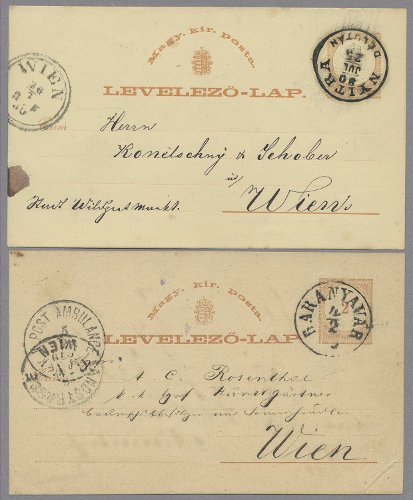 Magy. kir. Posta.
LEVELEZŐ-LAP.
WIEN
NYITRA
80
JUL
25
DÉLUTÁN
Herrn
Konétschný & Schober
in
Wien.
Stadt Wildpretmarkt.
Magy. kir. Posta.
LEVELEZŐ-LAP.
2
BARANYAVÁR
4/2
POST AMBULANCE
WIEN
A. C. Rosenthal
k. k. Hof Kunstgärtner
Wien